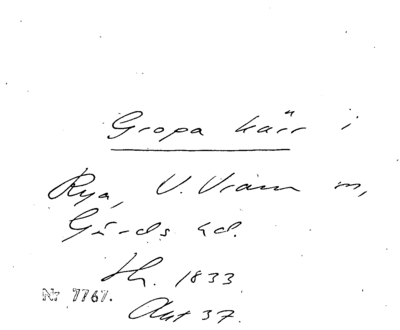 Gropa kärr i
Rya, V. Vram m,
Gärds hd.
Sk. 1833
Nr 7767.
Akt 37.